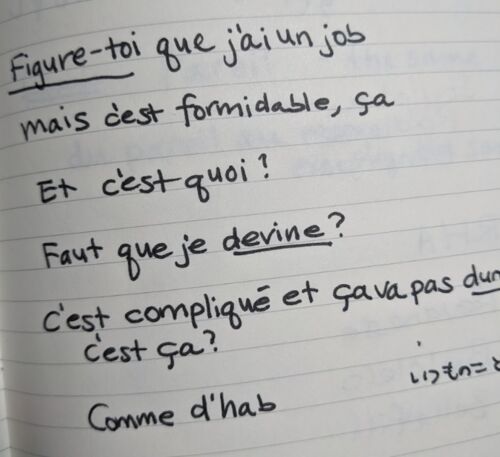 Figure-toi que j'ai un job
mais c'est formidable, ça
Et c'est quoi?
Faut que je devine?
c'est compliqué et ça va pas
c'est ça?
Comme d'hab